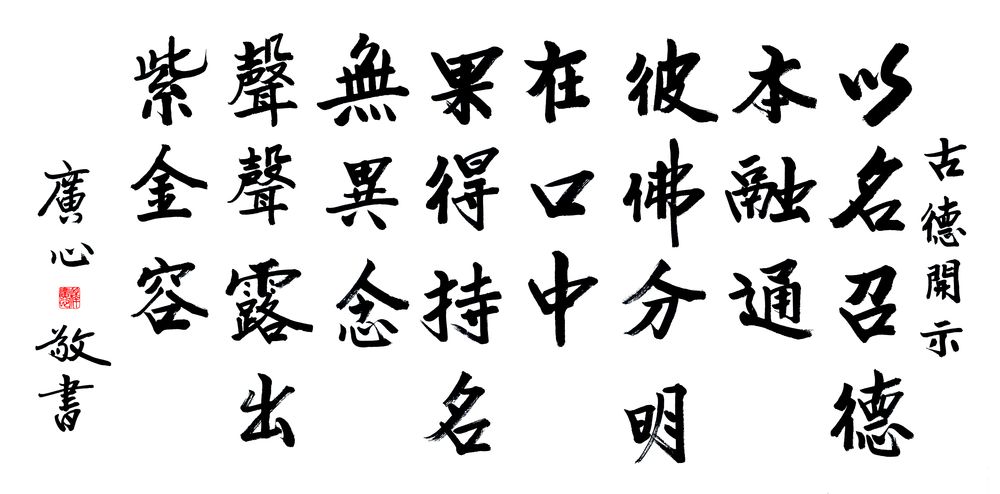 古德開示
以名召德
本融通
彼佛分明
在口中
果得持名
無異念
聲聲露出
紫金容
廣心
敬書